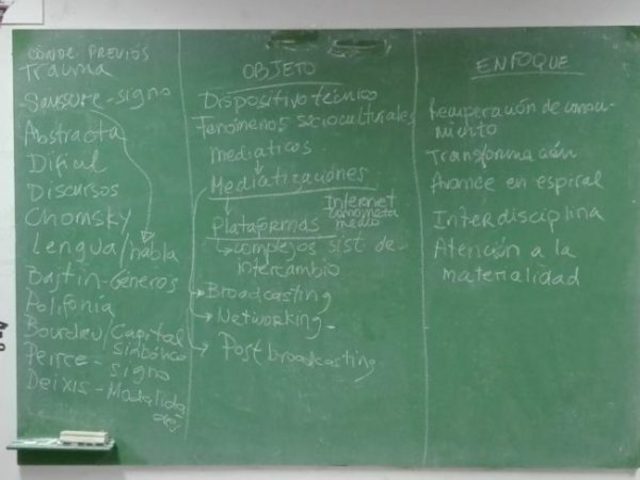 CONOC PREVIOS
Trauma
Saussure-signo
Abstracta
Dificil
Discursos
Chomsky
Lengua/habla
Bajtin-Géneros
Polifonía
Bourdieu/Capital
simbólico
Peirce-signo
Deixis-Modalida
des
OBJETO
Dispositivo técnico
Fenómenos socioculturales
mediáticos
Mediatizaciones
Internet
como meta
medio
Plataformas
complejos sist de
intercambio
Broadcasting
Networking
Post broadcasting
ENFOQUE
Recuperación de conoci-
miento
Transformación
Avance en espiral
Interdisciplina
Atención a la
materialidad